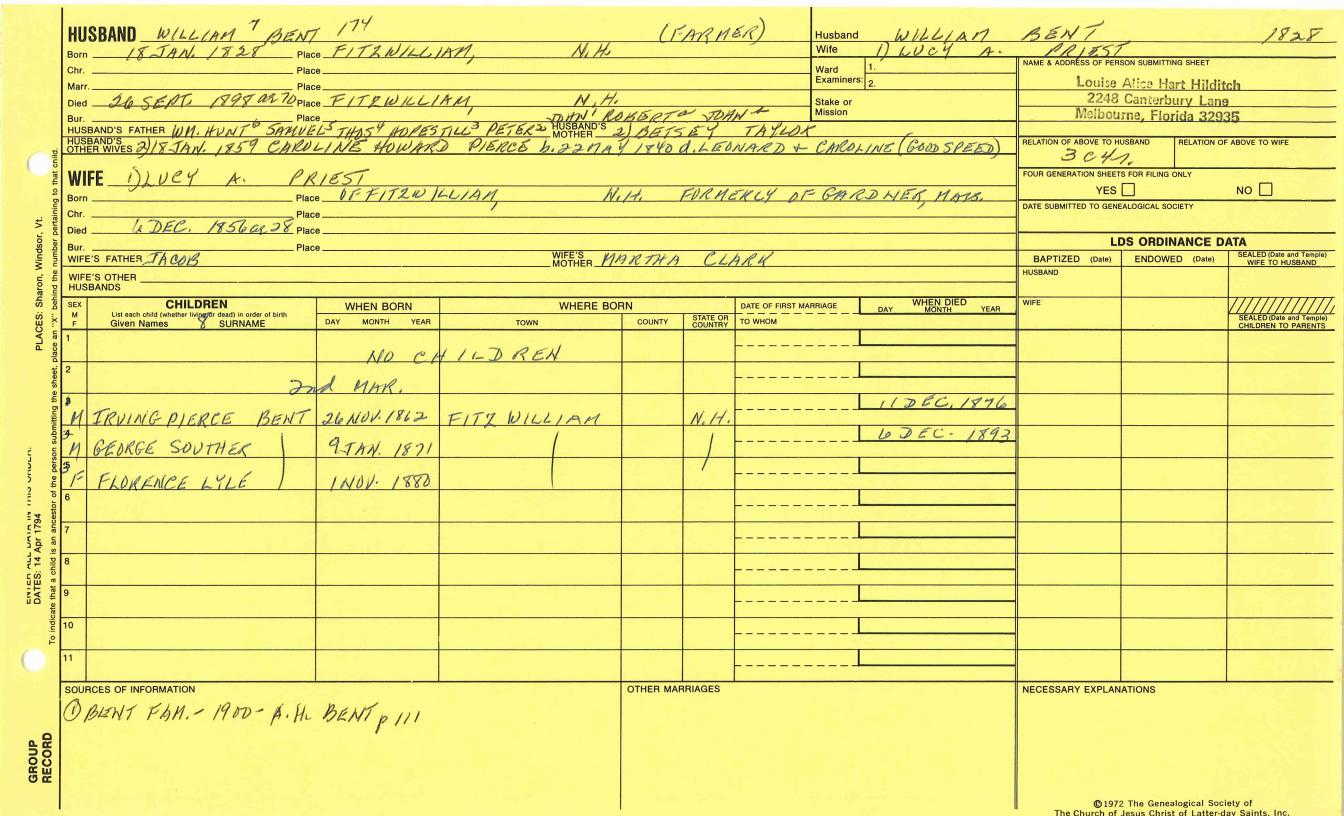 HUSBAND WILLIAM 7 BENT 174 (FARMER)
Born 18 JAN. 1828 Place FITZWILLIAM, N.H.
Chr. Place
Marr. Place
Died 26 SEPT. 1898 ae 70 Place FITZWILLIAM, N.H.
Bur. Place JOHN ROBERT JOHN
HUSBAND'S FATHER WM. HUNT 6 SAMUEL 5 THOS 4 HOPESTILL 3 PETER 2 HUSBAND'S MOTHER 2) BETSEY TAYLOR
HUSBAND'S OTHER WIVES 2) 18 JAN. 1859 CAROLINE HOWARD PIERCE b. 22 MAY 1840 d. LEONARD + CAROLINE (GOODSPEED)
WIFE 1) LUCY A. PRIEST
Born Place OF FITZWILLIAM, N.H. FORMERLY OF GARDNER, MASS.
Chr. Place
Died 6 DEC. 1856 ae 28 Place
Bur. Place
WIFE'S FATHER JACOB WIFE'S MOTHER MARTHA CLARK
WIFE'S OTHER HUSBANDS
Husband WILLIAM BENT 1828
Wife 1) LUCY A. PRIEST
Ward Examiners: 1.
2.
Stake or Mission
NAME & ADDRESS OF PERSON SUBMITTING SHEET
Louise Alice Hart Hilditch
2248 Canterbury Lane
Melbourne, Florida 32935
RELATION OF ABOVE TO HUSBAND RELATION OF ABOVE TO WIFE
3 C 4 r.
FOUR GENERATION SHEETS FOR FILING ONLY
YES NO
DATE SUBMITTED TO GENEALOGICAL SOCIETY
LDS ORDINANCE DATA
BAPTIZED (Date) ENDOWED (Date) SEALED (Date and Temple) WIFE TO HUSBAND
HUSBAND
WIFE
SEALED (Date and Temple) CHILDREN TO PARENTS
SEX M F CHILDREN WHEN BORN WHERE BORN DATE OF FIRST MARRIAGE WHEN DIED
List each child (whether living or dead) in order of birth
Given Names 8 SURNAME DAY MONTH YEAR TOWN COUNTY STATE OR COUNTRY TO WHOM DAY MONTH YEAR
1 NO CHILDREN
2 2nd MAR.
3 M IRVING PIERCE BENT 26 NOV. 1862 FITZWILLIAM N.H. 11 DEC, 1876
4 M GEORGE SOUTHER 9 JAN. 1871 6 DEC. 1893
5 F FLORENCE LYLE 1 NOV. 1880
6
7
8
9
10
11
SOURCES OF INFORMATION OTHER MARRIAGES NECESSARY EXPLANATIONS
① BENT FAM. - 1900 - A.H. BENT p 111
©1972 The Genealogical Society of
The Church of Jesus Christ of Latter-day Saints, Inc.
GROUP RECORD
ENTER ALL DATA IN THIS ORDER:
DATES: 14 Apr 1794
PLACES: Sharon, Windsor, Vt.
To indicate that a child is an ancestor of the person submitting the sheet, place an "X" behind the number pertaining to that child.